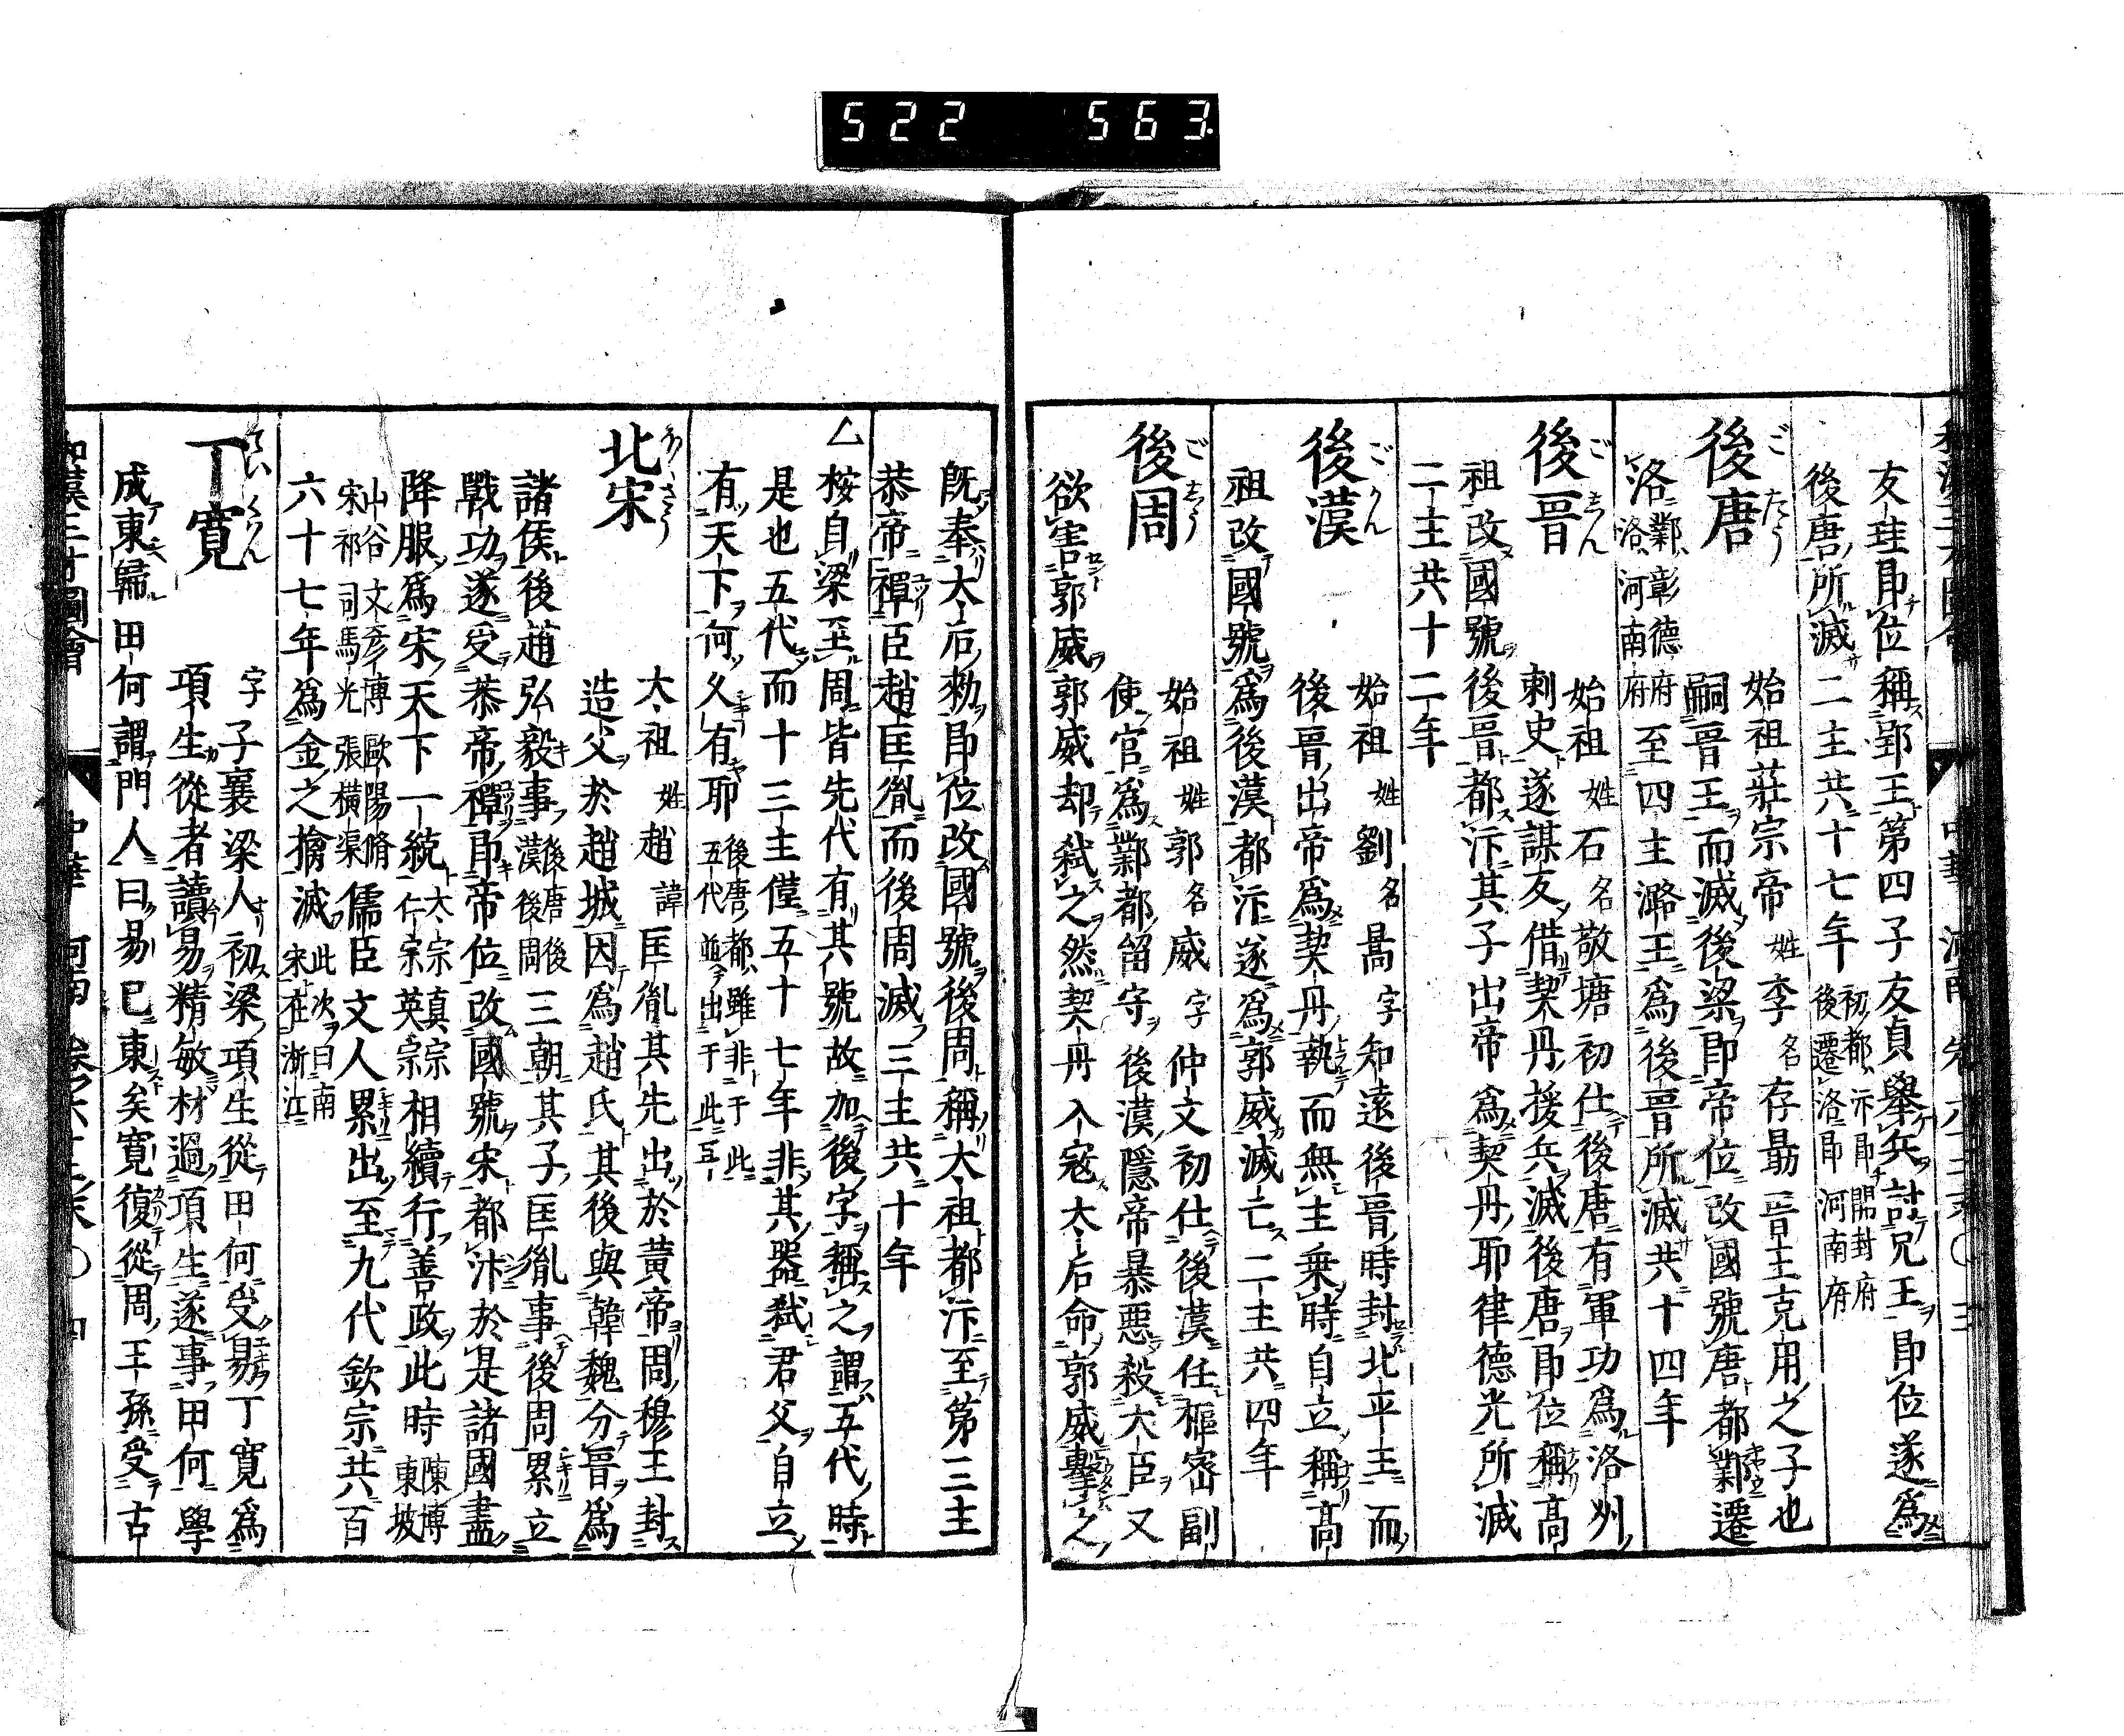 522 563
友珪即位稱郢王第四子友貞舉兵討兄王即位遂爲
後唐所滅二主共十七年 初都汴即開封府 後遷洛即河南府
後唐 ごたう
始祖莊宗帝 姓李 名存勗晋王克用之子也
嗣晋王而滅後梁即帝位改國號唐都鄴遷
洛 鄴彰德府 洛河南府 至四主潞王爲後晋所滅共十四年
後晋 ごしん
始祖 姓石 名敬塘初仕後唐有軍功爲洛州
刺史遂謀友借契丹援兵滅後唐即位稱高
祖改國號後晋都汴其子出帝爲契丹耶律德光所滅
二主共十二年
後漢 ごかん
始祖 姓劉 名暠 字知遠後晋時封北平王而
後晋出帝爲契丹執而無主乗時自立稱高
祖改國號爲後漢都汴遂爲郭威滅亡二主共四年
後周 ごしう
始祖 姓郭 名威 字仲文初仕後漢任樞密副
使官爲鄴都留守後漢隱帝暴惡殺大臣又
欲害郭威郭威却弑之然契丹入寇太后命郭威擊之
既奉太后勑即位改國號後周稱太祖都汴至第三主
恭帝禪臣趙匡胤而後周滅三主共十年
△按自梁至周皆先代有其號故加後字稱之謂五代時
是也五代而十三主僅五十七年非其器弑君父自立
有天下何久有耶 後唐都雖非于此 五代並出于此
北宋 ほくさう
太祖 姓趙 諱匡胤其先出於黃帝周穆王封
造父於趙城因爲趙氏其後與韓魏分晋爲
諸侯後趙弘毅事 後唐後漢後周 三朝其子匡胤事後周累立
戰功遂受恭帝禪即帝位改國號宋都汴於是諸國盡
降服爲宋天下一統 太宗真宗 仁宗英宗 相續行善政此時 陳博 東坡
山谷 文彦博 歐陽脩 宋祁 司馬光 張橫渠 儒臣文人累出至九代欽宗共百
六十七年爲金之擒滅 此次曰南宋在浙江
丁寛 ていくわん
字子襄梁人初梁項生從田何受易丁寛爲
項生從者讀易精敏材過項生遂事田何學
成東歸田何謂門人曰易已東矣寛復從周王孫受古
和漢三才圖會 中華 河南 卷六十二末 〇 四